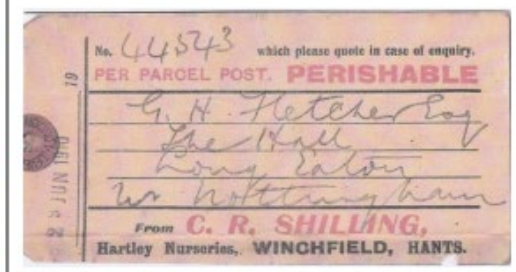 No. 44543 which please quote in case of enquiry.
PER PARCEL POST. PERISHABLE
G. H. Fletcher Esq
The Hall
Long Eaton
Nr Nottingham
From C. R. SHILLING,
Hartley Nurseries, WINCHFIELD, HANTS.
19
JUN